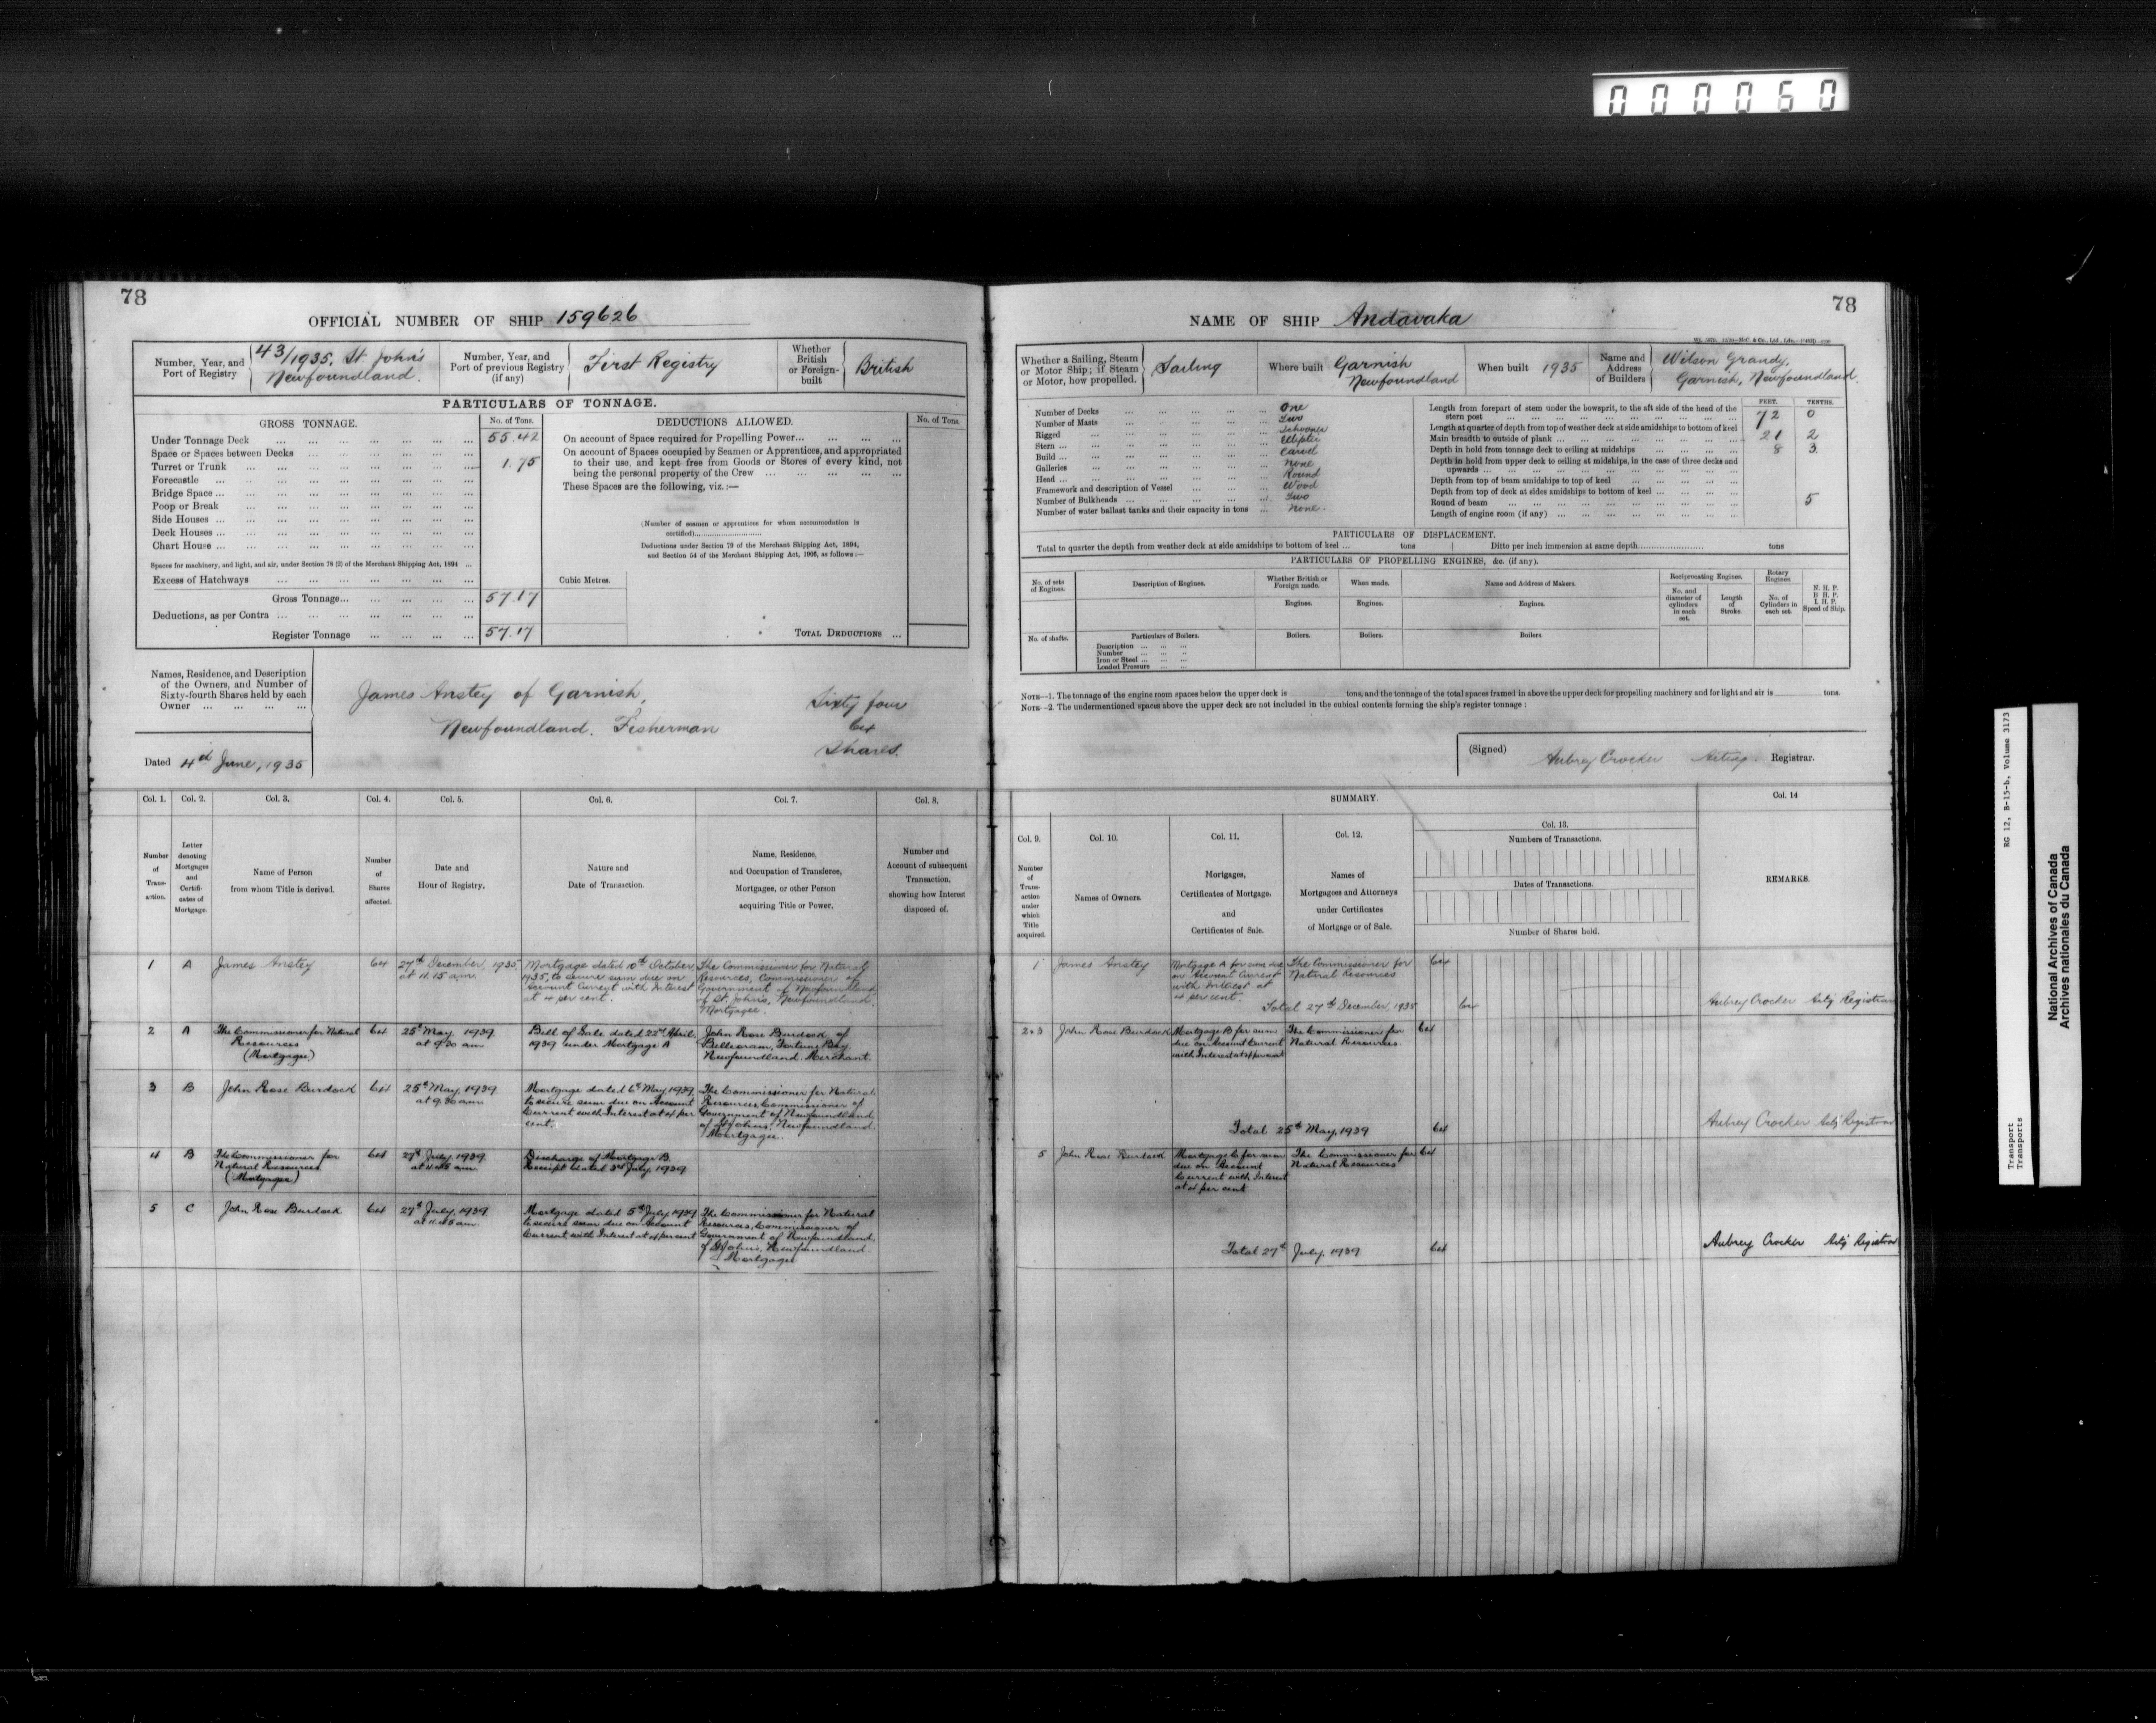 000060
78
OFFICIAL NUMBER OF SHIP 159626
Number, Year, and Port of Registry
43/1935, St John's
Newfoundland.
Number, Year, and Port of previous Registry (if any)
First Registry
Whether British or Foreign-built
British
PARTICULARS OF TONNAGE.
GROSS TONNAGE.
No. of Tons.
Under Tonnage Deck 55.42
Space or Spaces between Decks
Turret or Trunk 1.75
Forecastle
Bridge Space
Poop or Break
Side Houses
Deck Houses
Chart House
Spaces for machinery, and light, and air, under Section 78 (2) of the Merchant Shipping Act, 1894
Excess of Hatchways
Gross Tonnage 57.17
Deductions, as per Contra
Register Tonnage 57.17
DEDUCTIONS ALLOWED.
No. of Tons.
On account of Space required for Propelling Power
On account of Spaces occupied by Seamen or Apprentices, and appropriated
to their use, and kept free from Goods or Stores of every kind, not
being the personal property of the Crew
These Spaces are the following, viz.:—
(Number of seamen or apprentices for whom accommodation is
certified)
Deductions under Section 79 of the Merchant Shipping Act, 1894,
and Section 54 of the Merchant Shipping Act, 1906, as follows:—
Cubic Metres.
TOTAL DEDUCTIONS
Names, Residence, and Description
of the Owners, and Number of
Sixty-fourth Shares held by each
Owner
James Anstey of Garnish,
Newfoundland. Fisherman
Sixty four
64
Shares.
Dated 4th June, 1935
Col. 1. Col. 2. Col. 3. Col. 4. Col. 5. Col. 6. Col. 7. Col. 8.
Number of Transaction.
Letter denoting Mortgages and Certificates of Mortgage.
Name of Person from whom Title is derived.
Number of Shares affected.
Date and Hour of Registry.
Nature and Date of Transaction.
Name, Residence, and Occupation of Transferee, Mortgagee, or other Person acquiring Title or Power.
Number and Account of subsequent Transaction, showing how Interest disposed of.
1 A James Anstey 64 27th December, 1935 at 11.15 a.m.
Mortgage dated 10th October, 1935, to secure sum due on Account Current with Interest at 4 per cent.
The Commissioner for Natural Resources, Commissioner of Government of Newfoundland of St. John's, Newfoundland. Mortgagee.
2 A The Commissioner for Natural Resources (Mortgagee) 64 25th May, 1939 at 9.30 a.m.
Bill of Sale dated 22nd April, 1939 under Mortgage A
John Rose Burdock of Belleoram, Fortune Bay, Newfoundland. Merchant.
3 B John Rose Burdock 64 25th May, 1939 at 9.30 a.m.
Mortgage dated 6th May 1939, to secure sum due on Account Current with Interest at 4 per cent.
The Commissioner for Natural Resources Commissioner of Government of Newfoundland of St. John's, Newfoundland. Mortgagee.
4 B The Commissioner for Natural Resources (Mortgagee) 64 27th July, 1939 at 11.45 a.m.
Discharge of Mortgage B. Receipt dated 3rd July, 1939
5 C John Rose Burdock 64 27th July, 1939 at 11.45 a.m.
Mortgage dated 5th July, 1939 to secure sum due on Account Current with Interest at 4 per cent
The Commissioner for Natural Resources, Commissioner of Government of Newfoundland of St. John's, Newfoundland. Mortgagee
78
NAME OF SHIP Andavaka
Whether a Sailing, Steam or Motor Ship; if Steam or Motor, how propelled.
Sailing
Where built Garnish
Newfoundland
When built 1935
Name and Address of Builders
Wilson Grandy,
Garnish, Newfoundland.
Number of Decks One
Number of Masts Two
Rigged Schooner
Stern Elliptic
Build Carvel
Galleries None
Head Round
Framework and description of Vessel Wood
Number of Bulkheads Two
Number of water ballast tanks and their capacity in tons None.
FEET. TENTHS.
Length from forepart of stem under the bowsprit, to the aft side of the head of the
stern post 72 0
Length at quarter of depth from top of weather deck at side amidships to bottom of keel
Main breadth to outside of plank 21 2
Depth in hold from tonnage deck to ceiling at midships 8 3
Depth in hold from upper deck to ceiling at midships, in the case of three decks and
upwards
Depth from top of beam amidships to top of keel
Depth from top of deck at sides amidships to bottom of keel
Round of beam 5
Length of engine room (if any)
PARTICULARS OF DISPLACEMENT.
Total to quarter the depth from weather deck at side amidships to bottom of keel tons
Ditto per inch immersion at same depth tons
PARTICULARS OF PROPELLING ENGINES, &c. (if any).
No. of sets of Engines.
Description of Engines.
Whether British or Foreign made.
When made.
Name and Address of Makers.
Reciprocating Engines.
Rotary Engines
N. H. P.
B. H. P.
I. H. P.
Speed of Ship.
No. and diameter of cylinders in each set.
Length of Stroke.
No. of Cylinders in each set.
Engines. Engines. Engines.
No. of shafts.
Particulars of Boilers.
Boilers. Boilers. Boilers.
Description
Number
Iron or Steel
Loaded Pressure
NOTE—1. The tonnage of the engine room spaces below the upper deck is tons, and the tonnage of the total spaces framed in above the upper deck for propelling machinery and for light and air is tons.
NOTE—2. The undermentioned spaces above the upper deck are not included in the cubical contents forming the ship's register tonnage:
(Signed) Aubrey Crocker Acting Registrar.
SUMMARY.
Col. 9. Col. 10. Col. 11. Col. 12. Col. 13. Col. 14
Number of Transaction under which Title acquired.
Names of Owners.
Mortgages, Certificates of Mortgage, and Certificates of Sale.
Names of Mortgagees and Attorneys under Certificates of Mortgage or of Sale.
Numbers of Transactions.
Dates of Transactions.
Number of Shares held.
REMARKS.
1 James Anstey
Mortgage A for sum due on Account Current with Interest at 4 per cent.
The Commissioner for Natural Resources
64
Total 27th December, 1935 64
Aubrey Crocker Actg Registrar
2+3 John Rose Burdock
Mortgage B for sum due on Account Current with Interest at 4 per cent
The Commissioner for Natural Resources.
64
Total 25th May, 1939 64
Aubrey Crocker Actg Registrar
5 John Rose Burdock
Mortgage C for sum due on Account Current with Interest at 4 per cent
The Commissioner for Natural Resources
64
Total 27th July, 1939 64
Aubrey Crocker Actg Registrar
RG 12, B-15-b, Volume 3173
Transport
Transports
National Archives of Canada
Archives nationales du Canada